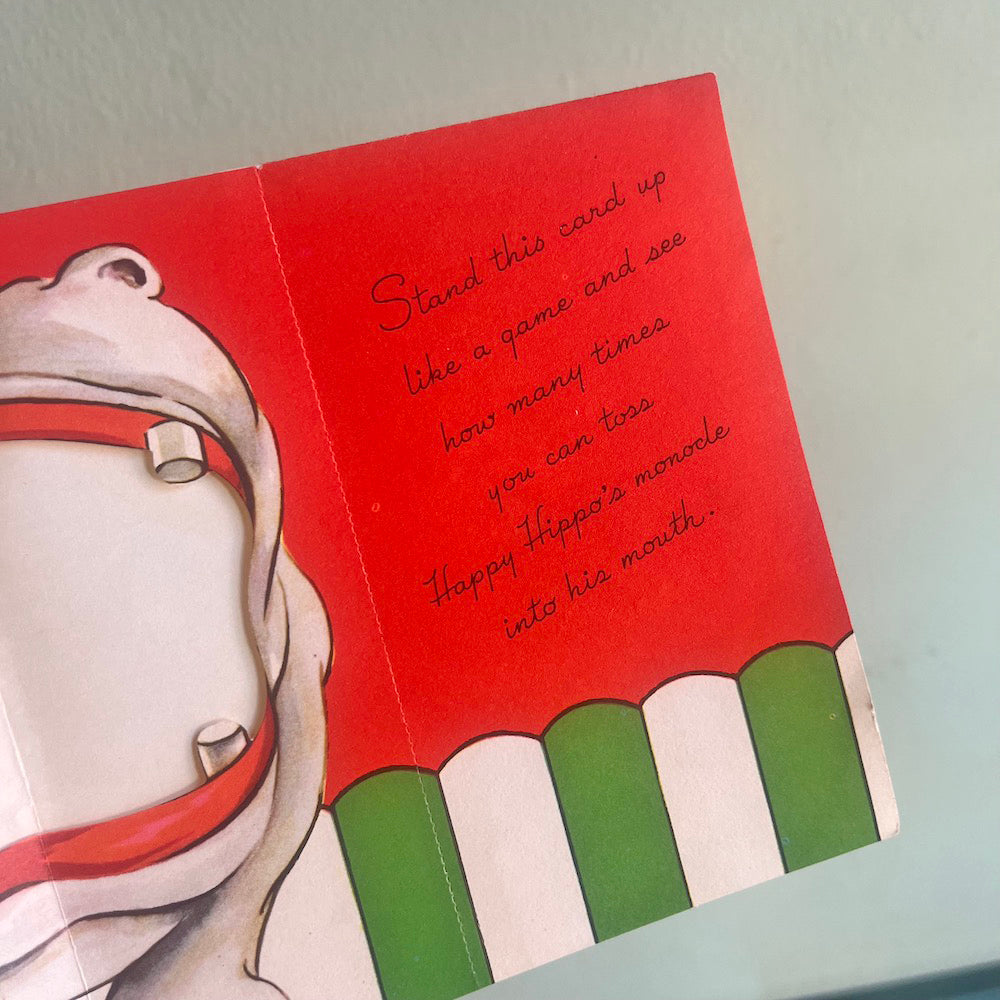 Stand this card up
like a game and see
how many times
you can toss
Happy Hippo's monocle
into his mouth.